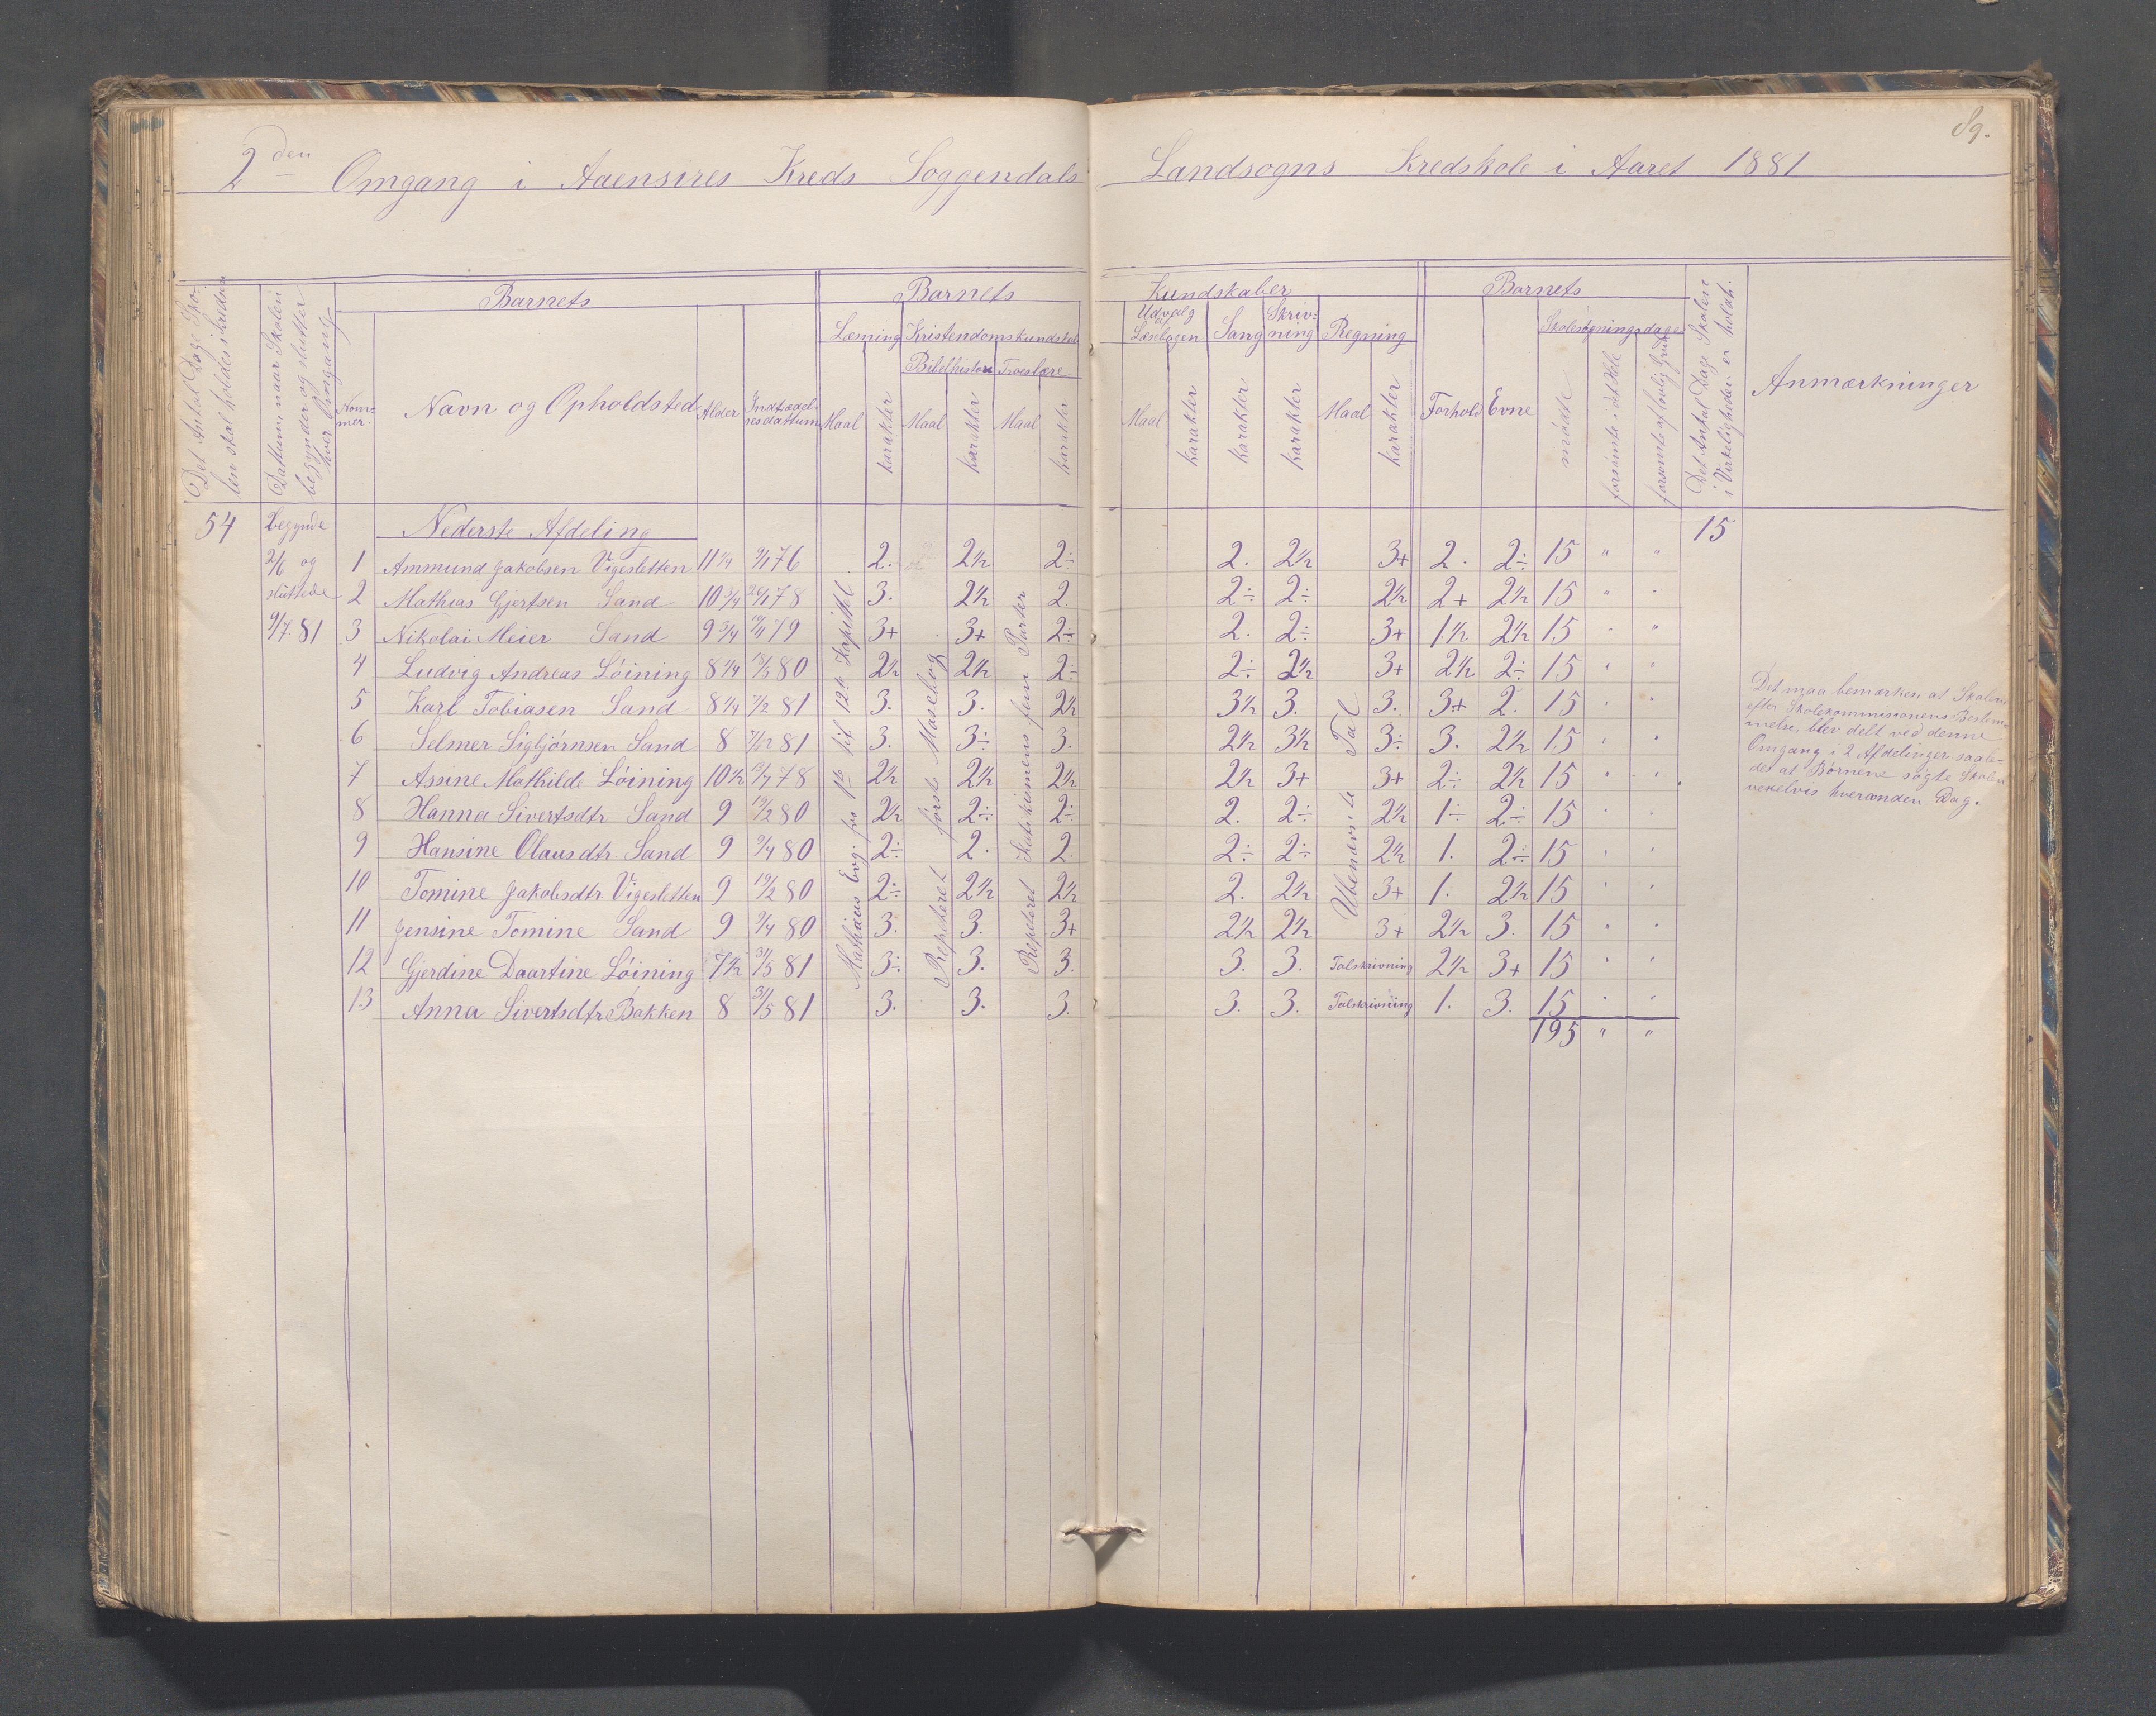 89.
2den Omgang i Aaensires Kreds Soggendals Landsogns Kredskole i Aaret 1881
Det Antal Dage Skolen skal holdes i Kredsen
Dattum, naar Skolen begynder og slutter hver Omgang
Barnets
Nommer.
Navn og Opholdsted
Alder
Indtrædelsesdattum
Barnets Kundskaber
Læsning
Maal
Karakter
Kristendomskundskab
Bibelhistorie
Maal
Karakter
Troeslære
Maal
Karakter
Udvalg af Læsebogen
Maal
Karakter
Sang
Karakter
Skrivning
Karakter
Regning
Maal
Karakter
Barnets
Forhold
Evne
Skolesøgningsdage
mødte
forsømte i det Hele
forsømte af lovlig Grund
Det Antal Dage Skolen i Virkeligheden er holdt.
Anmærkninger
54 Begyndte 2/6 og sluttede 9/7 81
Nederste Afdeling
15
1 Ammund Jakobsen Vigesletten 11 1/4 9/1 76 2. 2½ 2÷ 2. 2½ 3+ 2. 2÷ 15 " "
2 Mathias Gjertsen Sand 10 3/4 26/1 78 3. 2½ 2. 2÷ 2÷ 2½ 2+ 2½ 15 " "
3 Nikolai Meier Sand 9 3/4 79 3+ 3+ 2÷ 2. 2÷ 3+ 1½ 2½ 15 " "
4 Ludvig Andreas Löining 8 1/4 80 2½ 2½ 2÷ 2÷ 2½ 3+ 2½ 2÷ 15 " "
5 Karl Tobiasen Sand 8 1/4 7/2 81 3. 3. 2½ 3½ 3. 3. 3+ 2. 15 " "
6 Selmer Sigbjörnsen Sand 8 81 3. 3÷ 3. 2½ 3½ 3÷ 3. 2½ 15 " "
7 Assine Mathilde Löining 10½ 78 2½ 2½ 2½ 2½ 3+ 3+ 2÷ 2½ 15 " "
8 Hanna Sivertsdtr Sand 9 19/2 80 2½ 2÷ 2÷ 2. 2÷ 2½ 1÷ 2÷ 15 " "
9 Hansine Olausdtr Sand 9 9/4 80 2÷ 2. 2 2÷ 2÷ 2½ 1. 2÷ 15 " "
10 Tomine Jakobsdtr Vigesletten 9 19/2 80 2÷ 2½ 2½ 2. 2½ 3+ 1. 2½ 15 " "
11 Jensine Tomine Sand 9 9/4 80 3. 3. 3+ 2½ 2½ 3+ 2½ 3. 15 " "
12 Gjerdine Daartine Löining 7½ 31/5 81 3÷ 3. 3. 3. 3. Talskrivning 2½ 3+ 15 " "
13 Anna Sivertsdtr Bakken 8 31/5 81 3. 3. 3. 3. 3. Talskrivning 1. 3. 15 " "
195 " "
Mathæus Evg. fra 1te til 12te Kapitel
Repeteret første Mosebog
Repeteret Katekismens fem Parter
Ubenævnte Tal
Det maa bemærkes, at Skolen
efter Skolekommissionens Bestem-
melse, blev delt ved denne
Omgang i 2 Afdelinger saale-
des at Børnene søgte Skolen
vexelvis hveranden Dag.